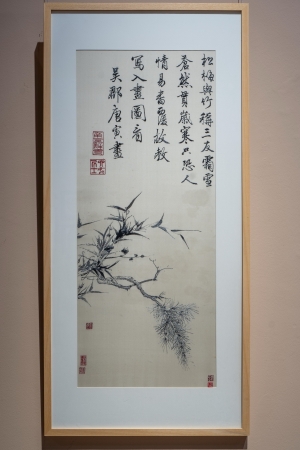 松梅與竹稱三友霜雪
蒼然貫歲寒只恐人
情易番覆故教
寫入畫圖看
吳郡唐寅畫